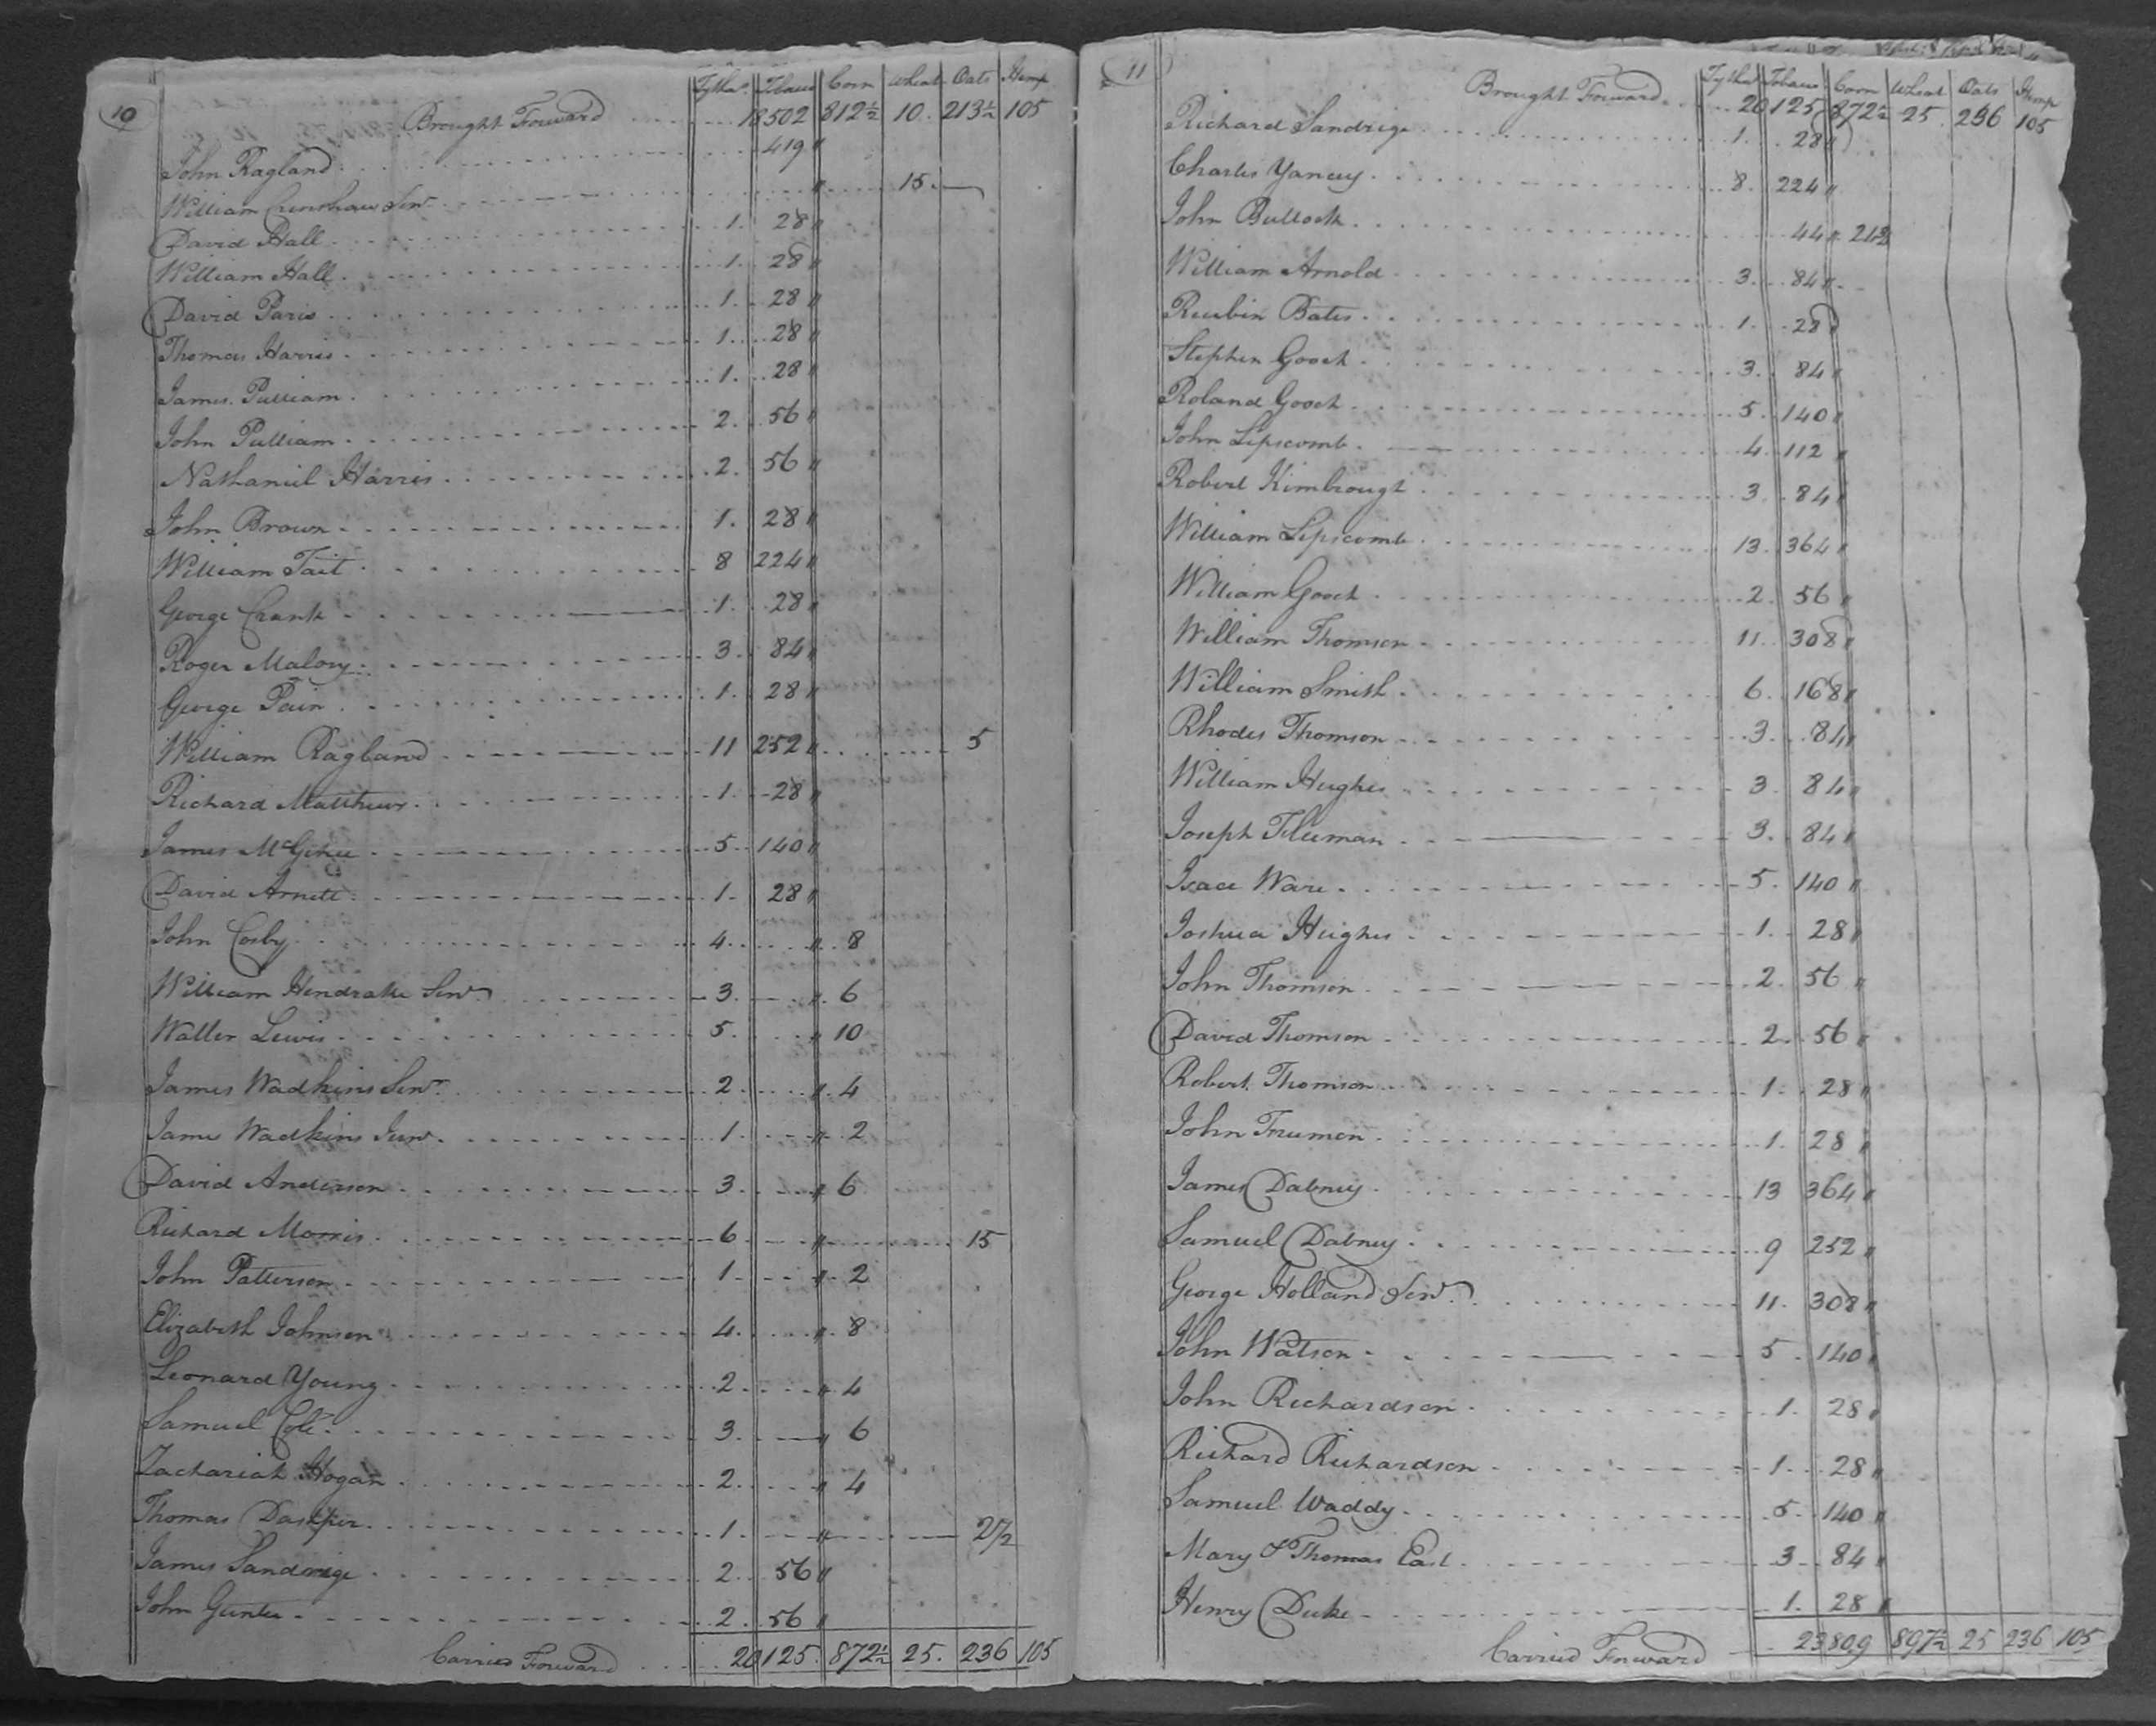 10
Tythes. Tobaco Corn Wheat Oats Hemp
Brought Forward 18502 812½ 10 213½ 105
John Ragland 419 "
William Crenshaw Senr " 15
David Hall 1 28 "
William Hall 1 28 "
David Paris 1 28 "
Thomas Harris 1 28 "
James Pulliam 1 28 "
John Pulliam 2 56 "
Nathaniel Harris 2 56 "
John Brown 1 28 "
William Tait 8 224 "
George Crank 1 28 "
Roger Malory 3 84 "
George Pain 1 28 "
William Ragland 11 252 " 5
Richard Matthews 1 28 "
James McGehee 5 140 "
David Arnett 1 28 "
John Cosby 4 " 8
William Hendrake Senr 3 " 6
Waller Lewis 5 " 10
James Wadkins Senr 2 " 4
James Wadkins Junr 1 " 2
David Anderson 3 " 6
Richard Morris 6 " 15
John Patterson 1 " 2
Elizabeth Johnson 4 " 8
Leonard Young 2 " 4
Samuel Cole 3 " 6
Zachariah Hogan 2 " 4
Thomas 1 " 2½
James Sandrige 2 56 "
John Gunter 2 56 "
Carried Forward 20125 872½ 25 236 105
11
Tythes Tobaco Corn Wheat Oats Hemp
Brought Forward 20125 872½ 25 236 105
Richard Sandrige 1 28 "
Charles Yancey 8 224 "
John Bullock 44 "
William Arnold 3 84 "
Reubin Bates 1 28 "
Stephen Gooch 3 84 "
Roland Gooch 5 140 "
John Lipscomb 4 112 "
Robert Kimbrough 3 84 "
William Lipscomb 13 364 "
William Gooch 2 56 "
William Thomson 11 308 "
William Smith 6 168 "
Rhodes Thomson 3 84 "
William Hughes 3 84 "
Joseph 3 84 "
Isace Ware 5 140 "
Joshua Hughes 1 28 "
John Thomson 2 56 "
David Thomson 2 56 "
Robert Thomson 1 28 "
John Truman 1 28 "
James Dabney 13 364 "
Samuel Dabney 9 252 "
George Holland Senr 11 308 "
John Watson 5 140 "
John Richardson 1 28 "
Richard Richardson 1 28 "
Samuel Waddy 5 140 "
Mary & Thomas East 3 84 "
Henry Duke 1 28 "
Carried Forward 23809 897½ 25 236 105